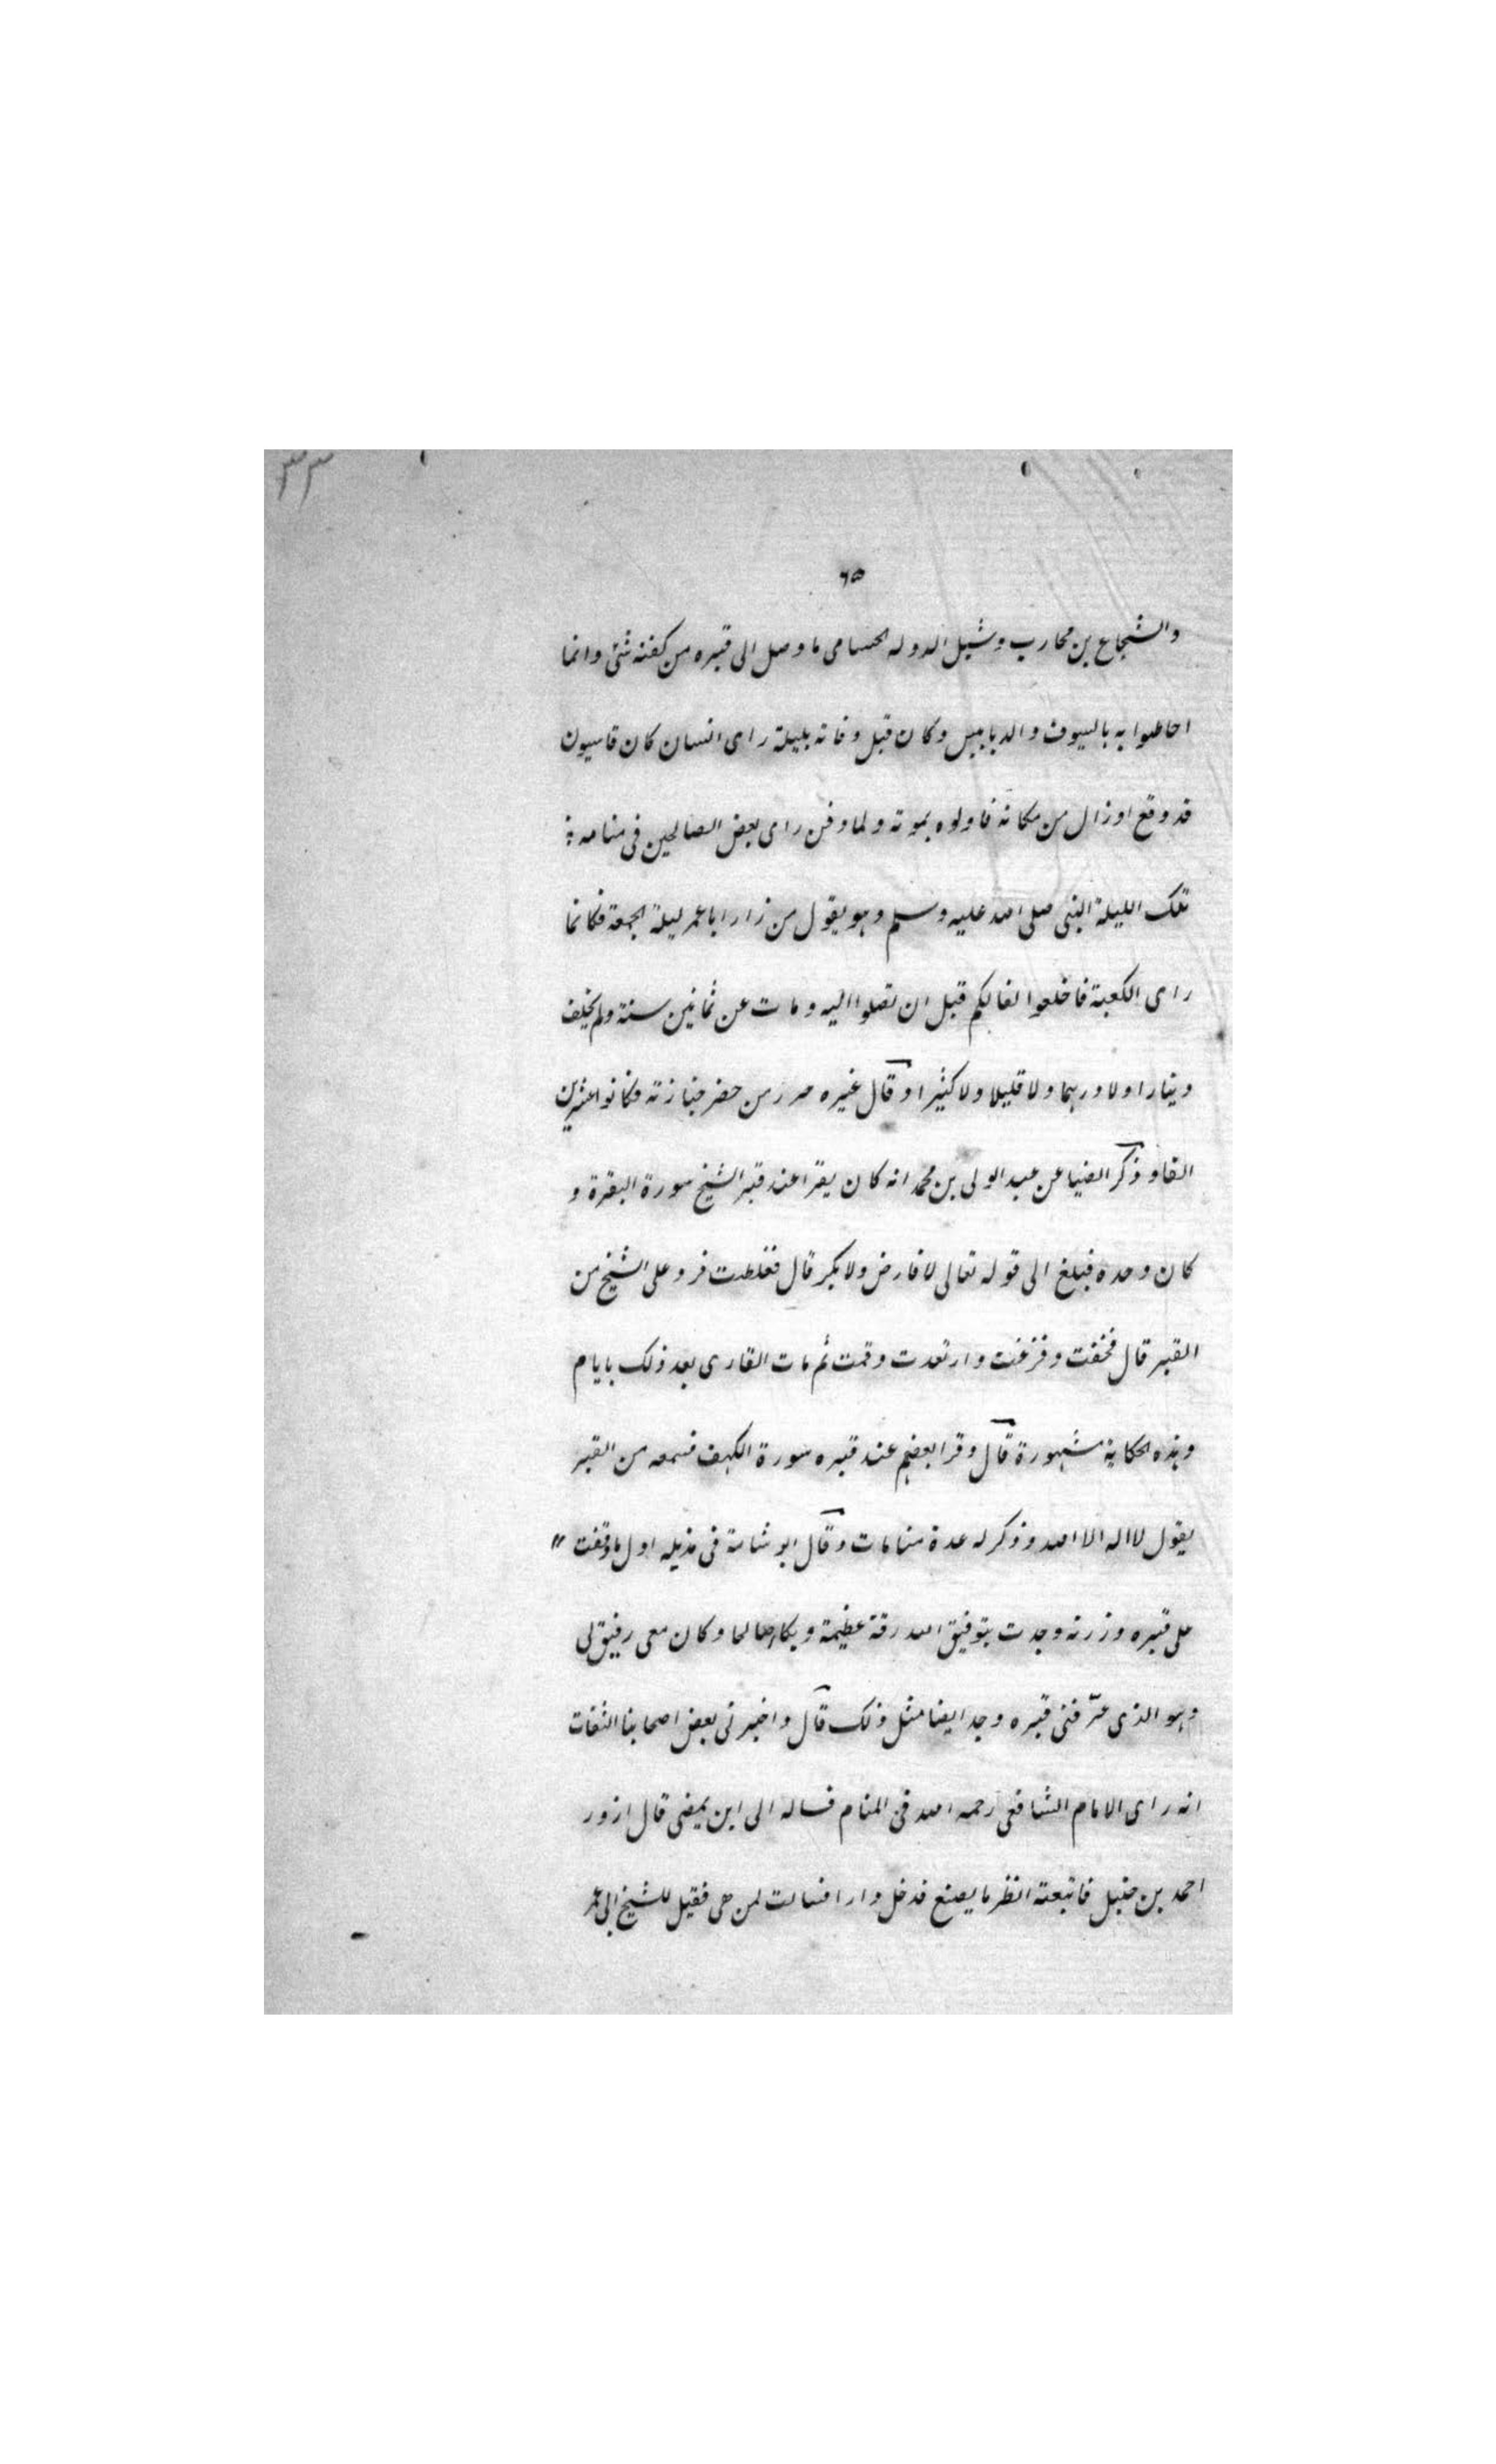 ٣٣
٦٥
والشجاع بن محارب وشبل الدوله الحسامى ما وصل الى قبره من كفنه شئ وانما
احاطوا به بالسيوف والدبابيس وكان قبل وفاته بليلة راى انسان كان قاسيون
قد وقع اوزال من مكانه فاولوه بموته ولما دفن راى بعض الصالحين فى منامه
تلك الليلة النبى صلى الله عليه وسلم وهو يقول من زار ابا عمر ليلة الجمعة فكانما
راى الكعبة فاخلعوا نعالكم قبل ان تصلوا اليه ومات عن ثمانين سنة ولم يخلف
دينارا ولا درهما ولا قليلا ولا كثيرا وقال غيره حرر من حضر جنازته فكانوا عشرين
الفا وذكر الضيا عن عبد الولى بن محمد انه كان يقرا عند قبر الشيخ سورة البقرة و
كان وحده فبلغ الى قوله تعالى لا فارض ولا بكر قال فغلطت فرد على الشيخ من
القبر قال فخفت وفزعت وارتعدت وقمت ثم مات القارى بعد ذلك بايام
وهذه الحكاية مشهورة قال وقرا بعضهم عند قبره سورة الكهف فسمعه من القبر
يقول لا اله الا الله وذكر له عدة منامات وقال ابو شامة فى مذيله اول ما وقفت
على قبره وزرته وجدت بتوفيق الله رقة عظيمة وبكاء صالحا وكان معى رفيق لى
وهو الذى عرّفنى قبره وجد ايضا مثل ذلك قال واخبرنى بعض اصحابنا الثقات
انه راى الامام الشافعى رحمه الله فى المنام فساله الى اين يمضى قال ازور
احمد بن حنبل فاتبعته انظر ما يصنع فدخل دارا فسالت لمن هى فقيل للشيخ ابى عمر